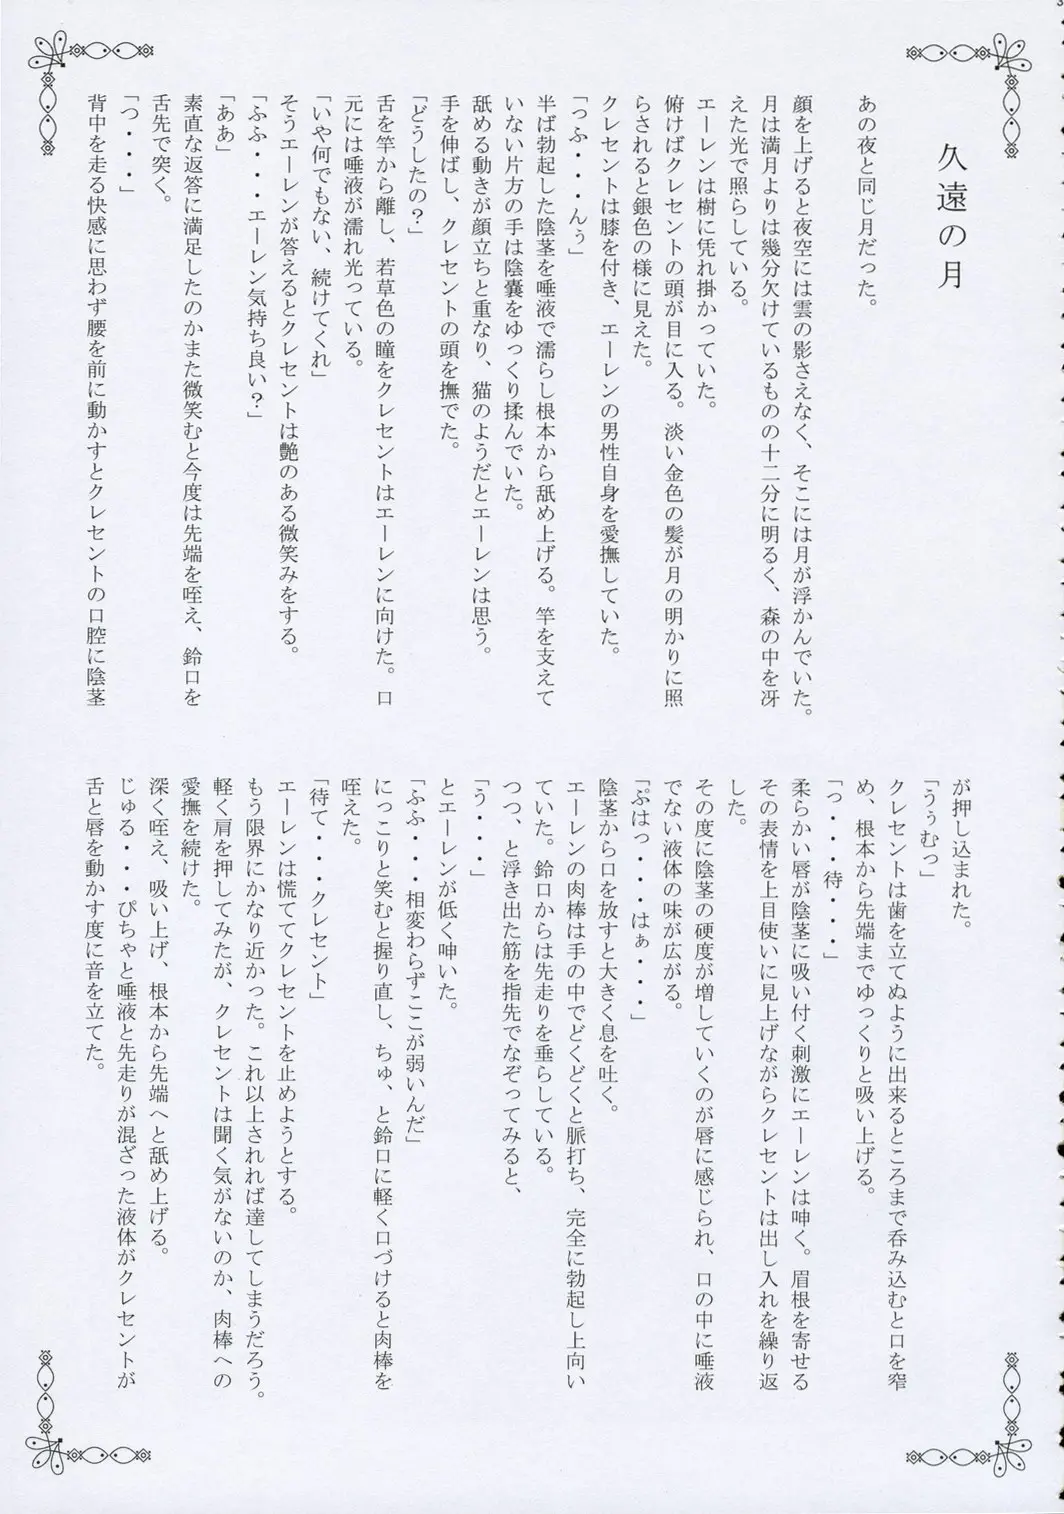 久遠の月
あの夜と同じ月だった。
顔を上げると夜空には雲の影さえなく、そこには月が浮かんでいた。
月は満月よりは幾分欠けているものの十二分に明るく、森の中を冴
えた光で照らしている。
エーレンは樹に凭れ掛かっていた。
俯けばクレセントの頭が目に入る。淡い金色の髪が月の明かりに照
らされると銀色の様に見えた。
クレセントは膝を付き、エーレンの男性自身を愛撫していた。
「っふ・・・んぅ」
半ば勃起した陰茎を唾液で濡らし根本から舐め上げる。竿を支えて
いない片方の手は陰嚢をゆっくり揉んでいた。
舐める動きが顔立ちと重なり、猫のようだとエーレンは思う。
手を伸ばし、クレセントの頭を撫でた。
「どうしたの？」
舌を竿から離し、若草色の瞳をクレセントはエーレンに向けた。口
元には唾液が濡れ光っている。
「いや何でもない、続けてくれ」
そうエーレンが答えるとクレセントは艶のある微笑みをする。
「ふふ・・・エーレン気持ち良い？」
「ああ」
素直な返答に満足したのかまた微笑むと今度は先端を咥え、鈴口を
舌先で突く。
「つ・・・」
背中を走る快感に思わず腰を前に動かすとクレセントの口腔に陰茎
が押し込まれた。
「うぅむっ」
クレセントは歯を立てぬように出来るところまで呑み込むと口を窄
め、根本から先端までゆっくりと吸い上げる。
「っ・・・待・・・」
柔らかい唇が陰茎に吸い付く刺激にエーレンは呻く。眉根を寄せる
その表情を上目使いに見上げながらクレセントは出し入れを繰り返
した。
その度に陰茎の硬度が増していくのが唇に感じられ、口の中に唾液
でない液体の味が広がる。
「ぷはっ・・・はぁ・・・」
陰茎から口を放すと大きく息を吐く。
エーレンの肉棒は手の中でどくどくと脈打ち、完全に勃起し上向い
ていた。鈴口からは先走りを垂らしている。
つつ、と浮き出た筋を指先でなぞってみると、
「う・・・」
とエーレンが低く呻いた。
「ふふ・・・相変わらずここが弱いんだ」
にっこりと笑むと握り直し、ちゅ、と鈴口に軽く口づけると肉棒を
咥えた。
「待て・・・クレセント」
エーレンは慌ててクレセントを止めようとする。
もう限界にかなり近かった。これ以上されれば達してしまうだろう。
軽く肩を押してみたが、クレセントは聞く気がないのか、肉棒への
愛撫を続けた。
深く咥え、吸い上げ、根本から先端へと舐め上げる。
じゅる・・・ぴちゃと唾液と先走りが混ざった液体がクレセントが
舌と唇を動かす度に音を立てた。